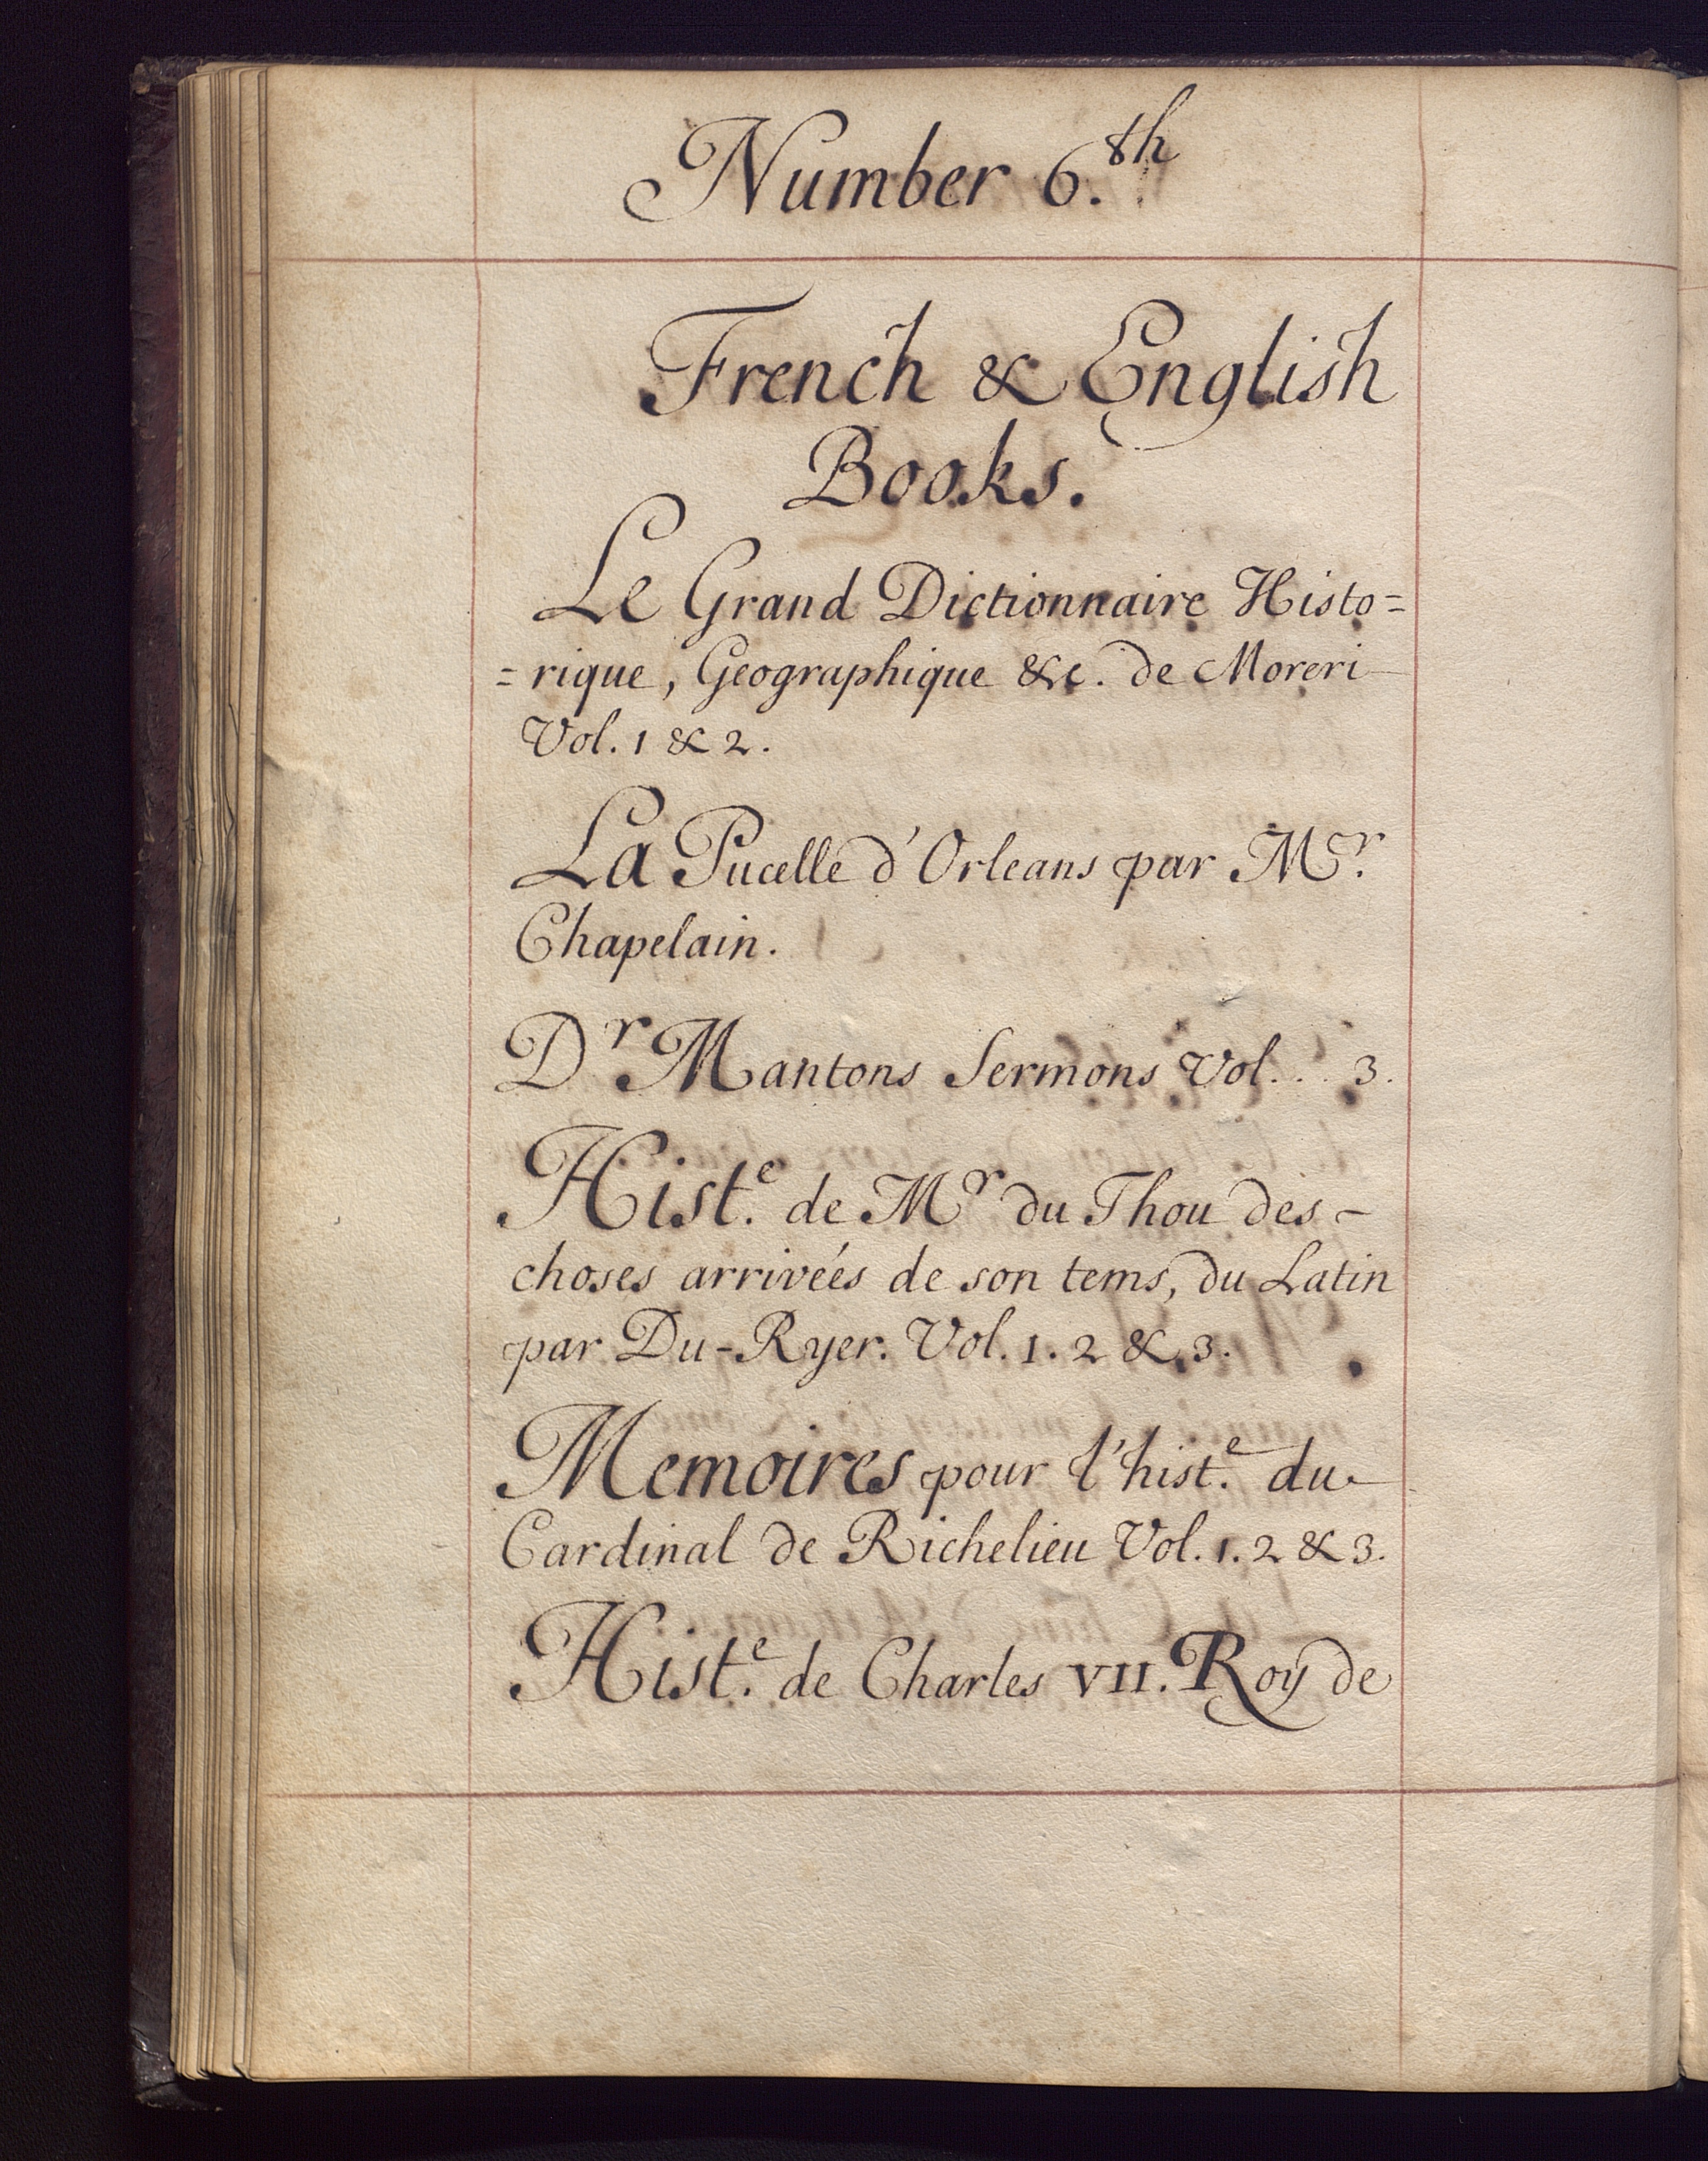 Number 6.th
French & English
Books.
Le Grand Dictionnaire Histo=
=rique, Geographique &c. de Moreri
Vol. 1 & 2.
La Pucelle d'Orleans par Mr.
Chapelain.
Dr Mantons Sermons Vol... 3.
Hist.e de Mr du Thou des -
choses arriveés de son tems, du Latin
par Du-Ryer. Vol. 1. 2 & 3.
Memoires pour l'hist.e du
Cardinal de Richelieu Vol. 1. 2 & 3.
Hist.e de Charles VII. Roy de